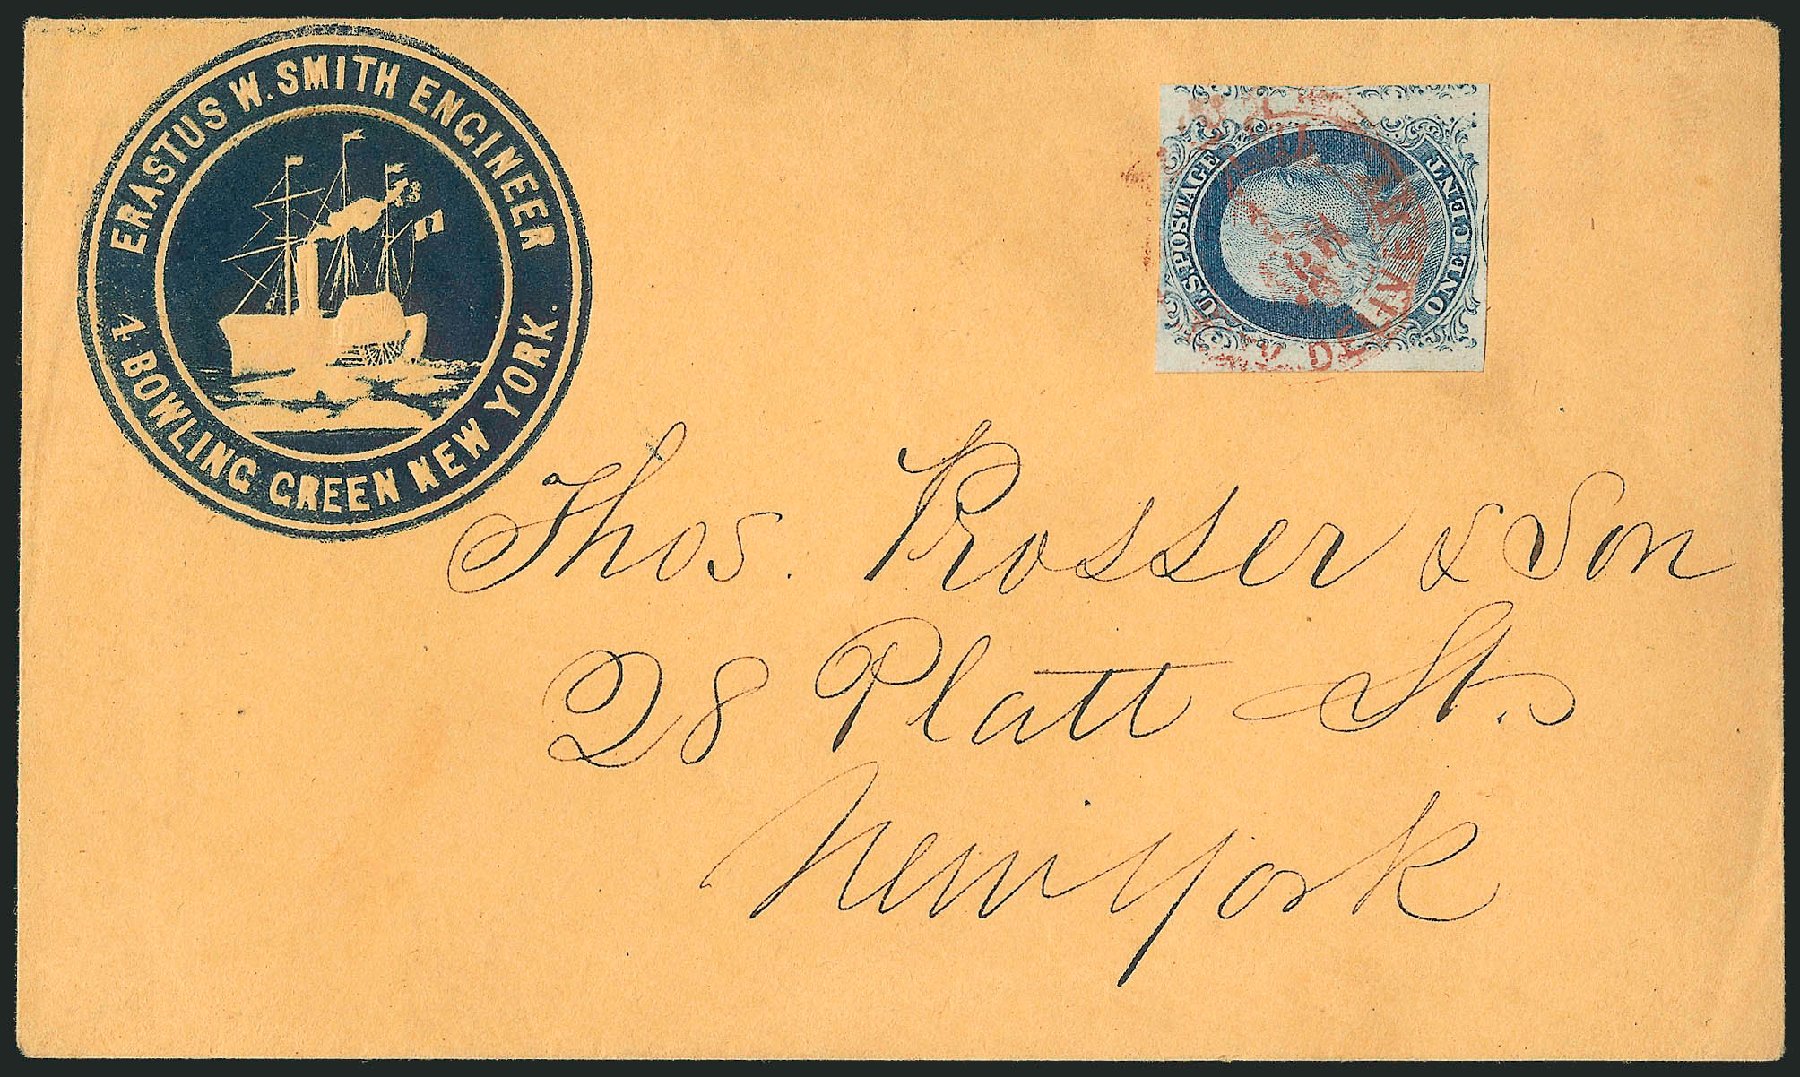 ERASTUS W. SMITH ENGINEER
4 BOWLING GREEN NEW YORK.
U.S. POSTAGE
ONE CENT
DELIVERY
Thos. Prosser & Son
28 Platt St.
New York